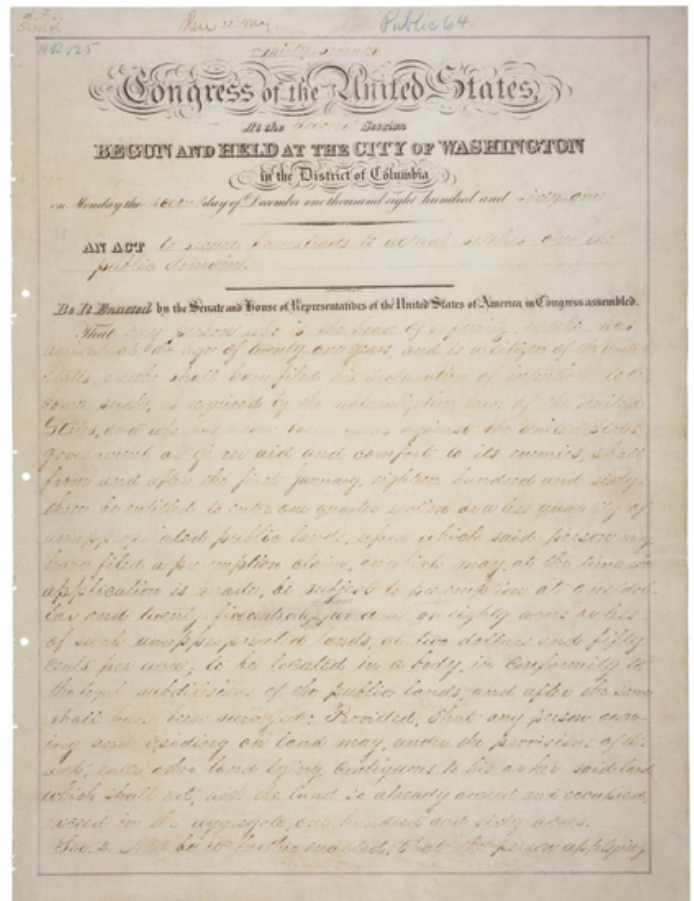 Public 64.
HR 125
Thirty-seventh
Congress of the United States,
At the Second Session
BEGUN AND HELD AT THE CITY OF WASHINGTON
in the District of Columbia
on Monday the second day of December one thousand eight hundred and sixty-one
AN ACT to secure homesteads to actual settlers on the
public domain.
Be It Enacted by the Senate and House of Representatives of the United States of America in Congress assembled.
That any person who is the head of a family, or who has
arrived at the age of twenty one years, and is a citizen of the United
States, or who shall have filed his declaration of intention to be-
come such, as required by the naturalization laws of the United
States, and who has never borne arms against the United States
government or given aid and comfort to its enemies, shall
from and after the first January, eighteen hundred and sixty
three be entitled to enter one quarter section or a less quantity of
unappropriated public lands, upon which said person may
have filed a pre emption claim, or which may, at the time
application is made, be subject to pre emption at one dol-
lar and twenty-five cents, or less, per acre, or eighty acres or less
of such unappropriated lands, at two dollars and fifty
cents per acre, to be located in a body, in conformity to
the legal subdivisions of the public lands, and after the same
shall have been surveyed: Provided, That any person own-
ing and residing on land may, under the provisions of this
act, enter other land lying contiguous to his or her said land,
which shall not, with the land so already owned and occupied,
exceed in the aggregate one hundred and sixty acres.
Sec. 2. And be it further enacted, That the person applying